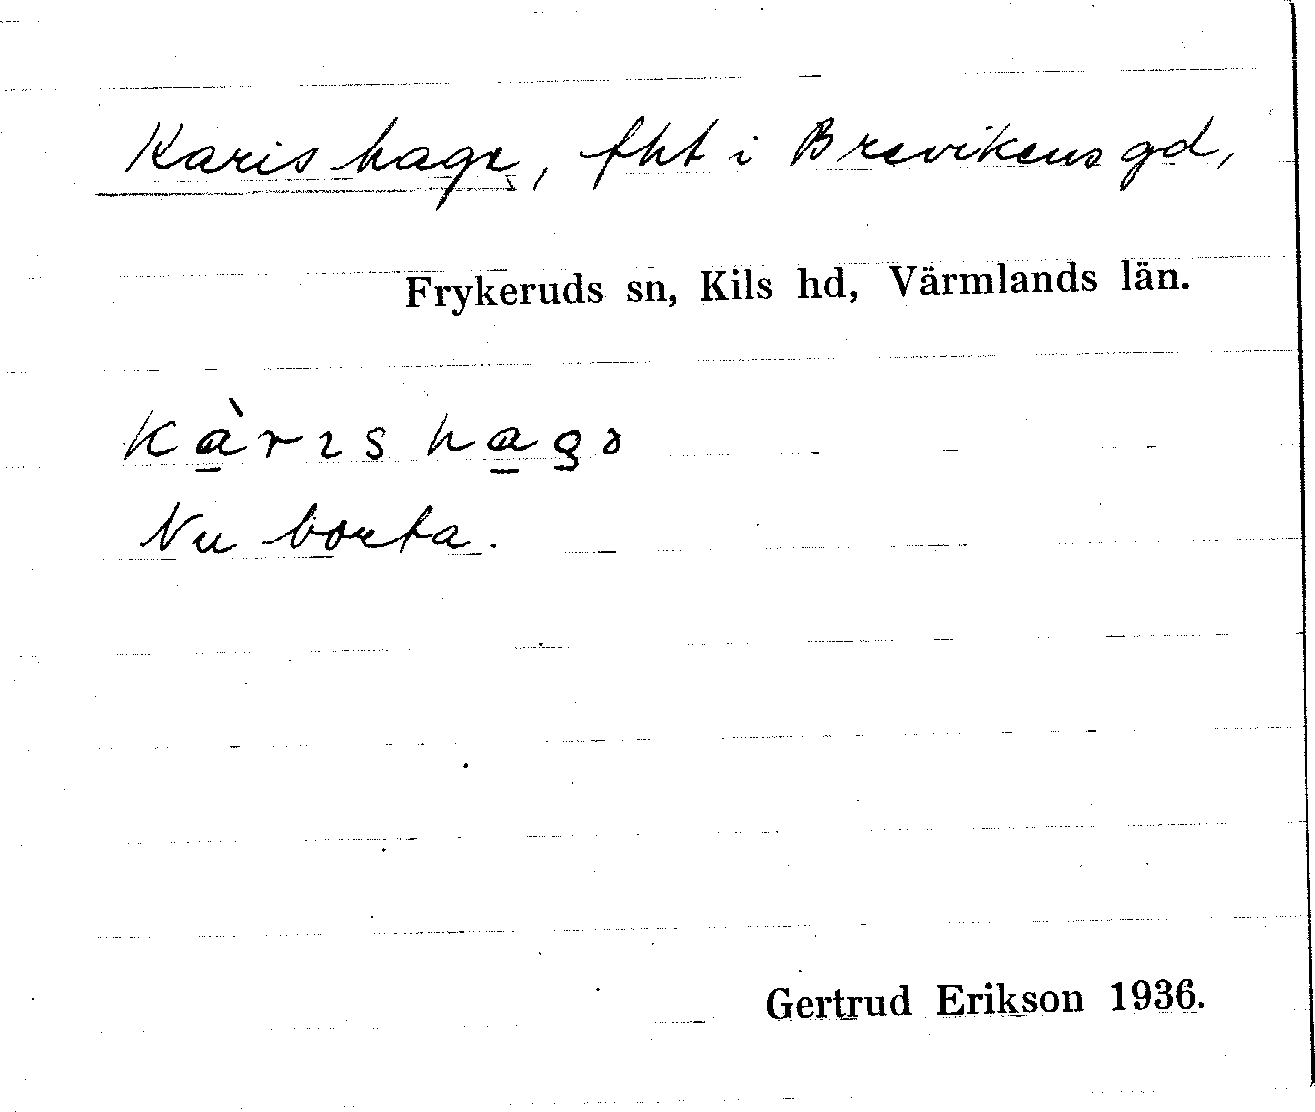 Karishage, fht i Brevikens gd,
Frykeruds sn, Kils hd, Värmlands län.
kàrıs hagə
Nu borta.
Gertrud Erikson 1936.